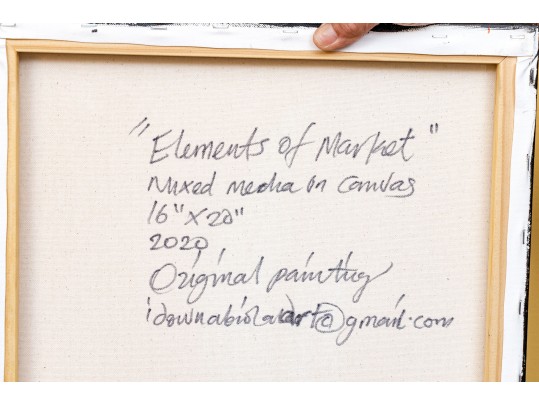 "Elements of Market"
Mixed media on Canvas
16"X20"
2020
Original painting